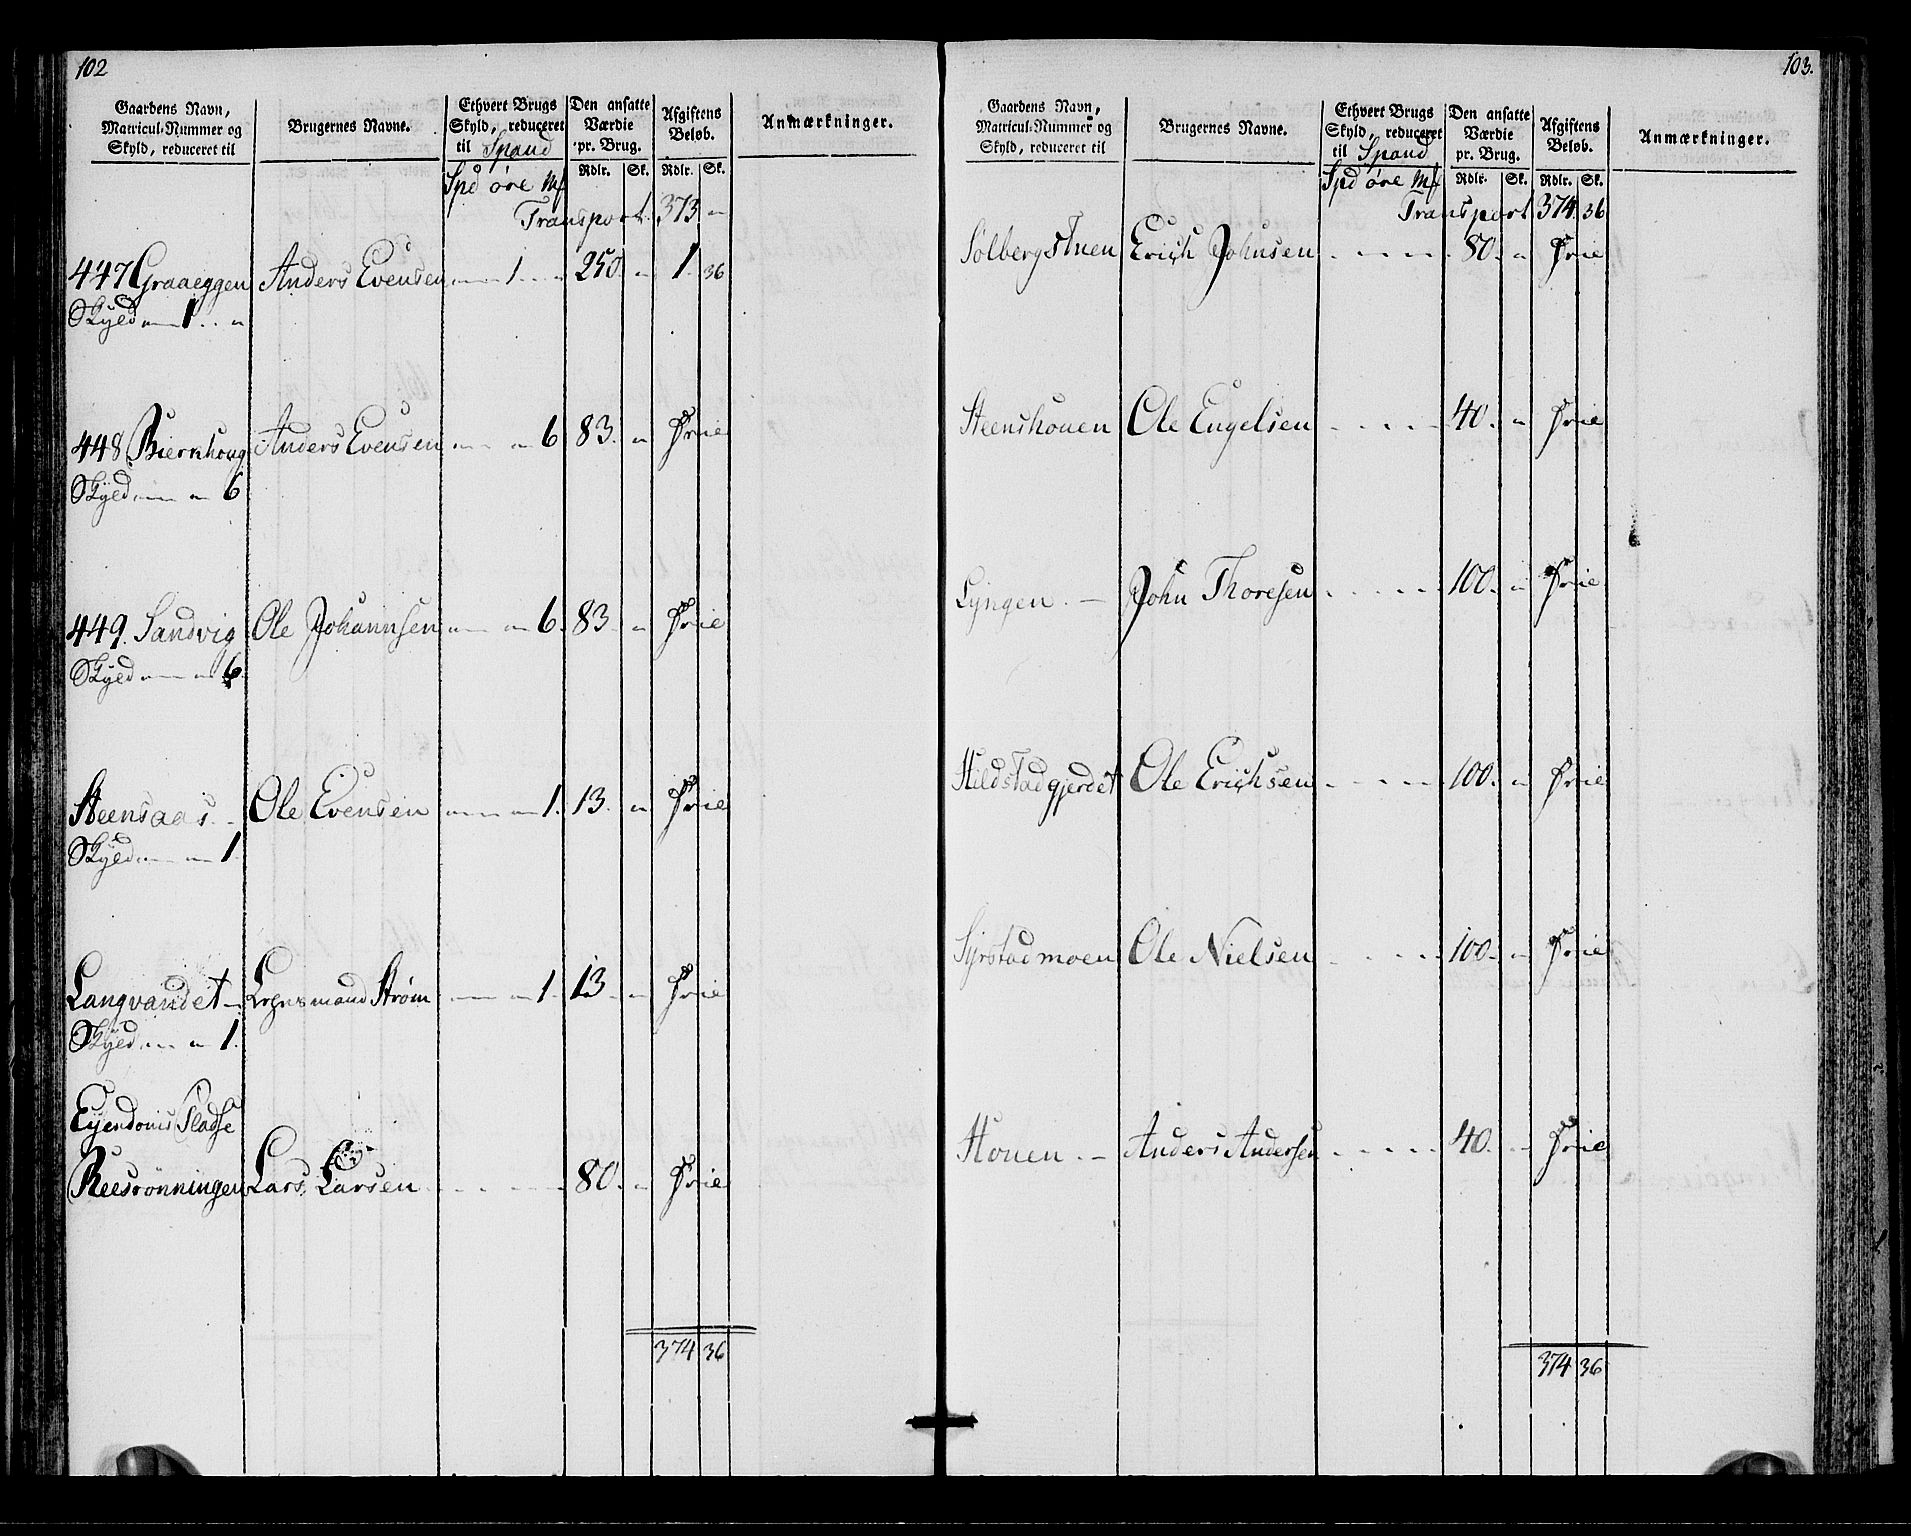 102
Gaardens Navn, Matricul-Nummer og Skyld, reduceret til
Brugernes Navne.
Ethvert Brugs Skyld, reduceret til Spand
Den ansatte Værdie pr. Brug.
Afgiftens Beløb.
Anmærkninger.
Spd øre Mk
Rdlr. Sk. Rdlr. Sk.
Transport. 373 "
447 Graaeggen Anders Evensen " 1 " 250. " 1. 36
Skyld " 1 . . "
448 Biernhoug Anders Evensen " " 6 83. " Frie
Skyld " " 6
449. Sandvig Ole Johannsen " " 6. 83. " Frie
Skyld " " 6
Steensaas. - Ole Evensen " " 1. 13. " Frie
Skyld " " 1.
Langvandet - Lensmand Strøm " " 1. 13. " Frie
Skyld " " 1.
Eyendoms Pladse
Reesrønningen Lars Larsen . . . . 80. " Frie
374 36
103.
Gaardens Navn, Matricul-Nummer og Skyld, reduceret til
Brugernes Navne.
Ethvert Brugs Skyld, reduceret til Spand
Den ansatte Værdie pr. Brug.
Afgiftens Beløb.
Anmærkninger.
Spd øre Mk
Rdlr. Sk. Rdlr. Sk.
Transport 374. 36
Solbergstuen Erich Johnsen - - - - 80. " Frie
Steenshouen Ole Engelsen - - - - 40. " Frie
Lyngen. - John Thoresen - - - - 100. " Frie
Hildstadgjerdet Ole Erichsen - - - - 100. " Frie
Syrstadmoen Ole Nielsen - - - - 100. " Frie
Houen. - Anders Andersen - - - - 40. " Frie
374 36